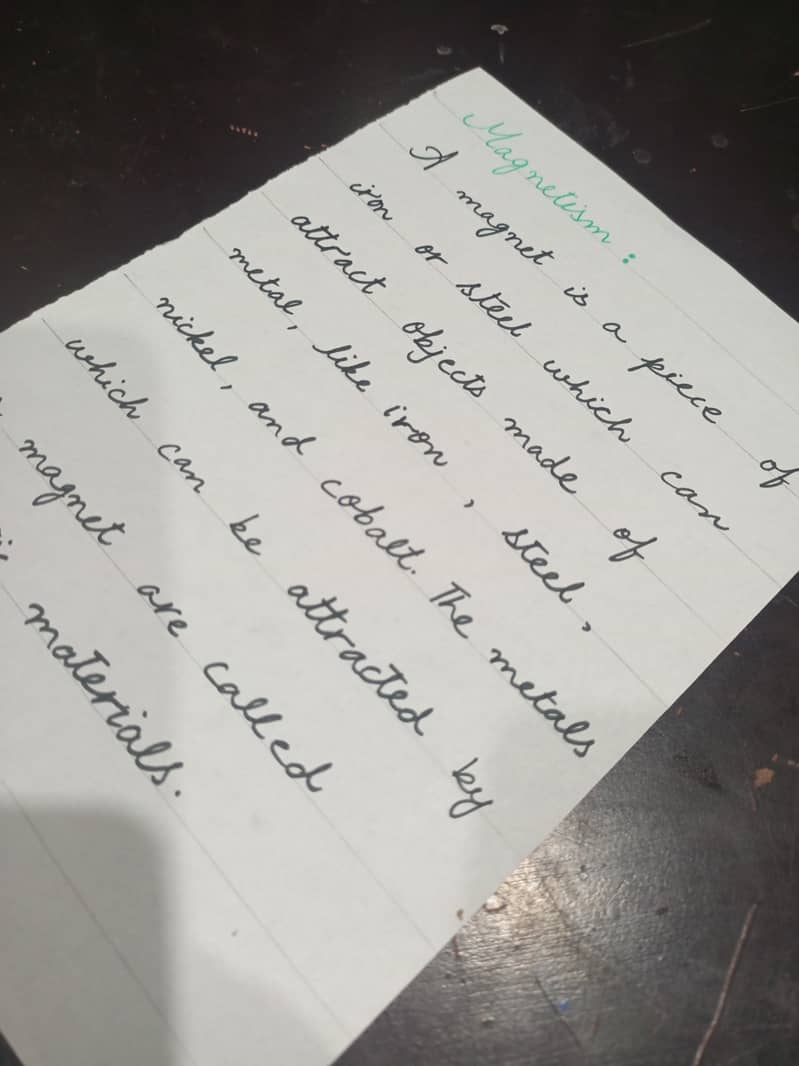 Magnetism:
A magnet is a piece of
iron or steel which can
attract objects made of
metal, like iron, steel,
nickel, and cobalt. The metals
which can be attracted by
magnet are called
materials.